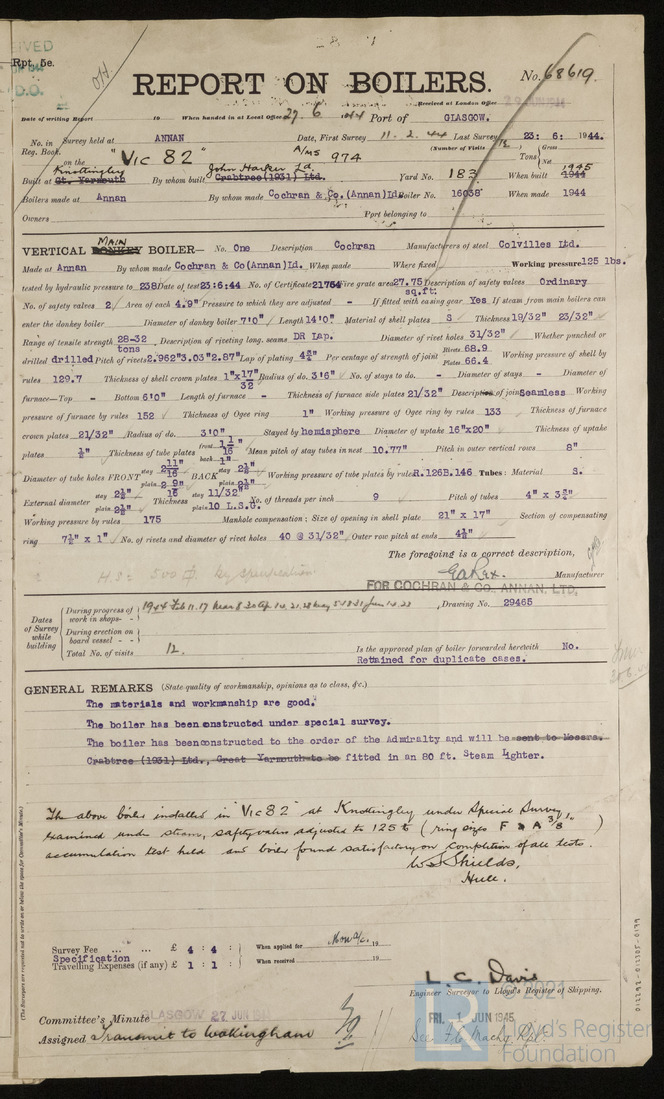 Rpt. 5e.
REPORT ON BOILERS.
No. 68619.
Received at London Office
Date of writing Report 19 When handed in at Local Office 27. 6. 1944 Port of GLASGOW.
No. in Reg. Book. Survey held at ANNAN Date, First Survey 11. 2. 44 Last Survey 23: 6: 1944.
on the "VIC 82" A/MS 974 (Number of Visits 12) Tons Gross Net
Built at Knottingley Gt. Yarmouth By whom built John Harker Ld Crabtree(1931) Ltd. Yard No. 183 When built 1945 1944
Boilers made at Annan By whom made Cochran & Co.(Annan)Ld. Boiler No. 16038 When made 1944
Owners Port belonging to
VERTICAL MAIN DONKEY BOILER— No. One Description Cochran Manufacturers of steel Colvilles Ltd.
Made at Annan By whom made Cochran & Co(Annan)Ld. When made Where fixed Working pressure 125 lbs.
tested by hydraulic pressure to 238 Date of test 23:6:44 No. of Certificate 21764 Fire grate area 27.75 sq.ft. Description of safety valves Ordinary
No. of safety valves 2 Area of each 4.9" Pressure to which they are adjusted - If fitted with easing gear Yes If steam from main boilers can
enter the donkey boiler Diameter of donkey boiler 7'0" Length 14'0" Material of shell plates S Thickness 19/32" 23/32"
Range of tensile strength 28-32 tons Description of riveting long. seams DR Lap. Diameter of rivet holes 31/32" Whether punched or
drilled drilled Pitch of rivets 2.962"3.03"2.87" Lap of plating 4¾" Per centage of strength of joint Rivets 68.9 Plates 66.4 Working pressure of shell by
rules 129.7 Thickness of shell crown plates 1"x17"/32 Radius of do. 3'6" No. of stays to do. - Diameter of stays - Diameter of
furnace—Top - Bottom 6'0" Length of furnace - Thickness of furnace side plates 21/32" Description of joint Seamless Working
pressure of furnace by rules 152 Thickness of Ogee ring 1" Working pressure of Ogee ring by rules 133 Thickness of furnace
crown plates 21/32" Radius of do. 3'0" Stayed by hemisphere Diameter of uptake 16"x20" Thickness of uptake
plates ½" Thickness of tube plates front 1 1/16" back 1" Mean pitch of stay tubes in nest 10.77" Pitch in outer vertical rows 8"
Diameter of tube holes FRONT stay 2 11/16" plain 2 9/16" BACK stay 2½" plain 2½" Working pressure of tube plates by rules R.126 B.146 Tubes: Material S.
External diameter stay 2½" plain 2½" Thickness stay 11/32" plain 10 L.S.G. No. of threads per inch 9 Pitch of tubes 4" X 3¾"
Working pressure by rules 175 Manhole compensation: Size of opening in shell plate 21" x 17" Section of compensating
ring 7½" x 1" No. of rivets and diameter of rivet holes 40 @ 31/32" Outer row pitch at ends 4½"
The foregoing is a correct description,
H.S: 500 by specification
Manufacturer
FOR COCHRAN & CO., ANNAN, LTD.
Dates of Survey while building
During progress of work in shops - - 1944 Feb 11. 17 Mar 8
Drawing No. 29465
During erection on board vessel - -
Total No. of visits 12.
Is the approved plan of boiler forwarded herewith No.
Retained for duplicate cases.
GENERAL REMARKS (State quality of workmanship, opinions as to class, &c.)
The materials and workmanship are good.
The boiler has been constructed under special survey.
The boiler has been constructed to the order of the Admiralty and will be sent to Messrs.
Crabtree (1931) Ltd., Great Yarmouth to be fitted in an 80 ft. Steam Lighter.
The above boiler installed in "VIC 82" at Knottingley under Special Survey
examined under steam, safety valves adjusted to 125 lb (ring sizes F & A 3/8")
accumulation test held and boiler found satisfactory on completion of all tests.
W S Shields,
Hull.
(The Surveyors are requested not to write on or below the space for Committee's Minute.)
Survey Fee ... ... £ 4 : 4 : When applied for 19
Specification
Travelling Expenses (if any) £ 1 : 1 : When received 19
L. C. Davis
Engineer Surveyor to Lloyd's Register of Shipping.
Committee's Minute GLASGOW 27 JUN 1944
FRI. 1 JUN 1945
Assigned Transmit to Wokingham
See F.E. Machy Rpt.
© 2021
Lloyd's Register
Foundation
LR
012292-012305-0179